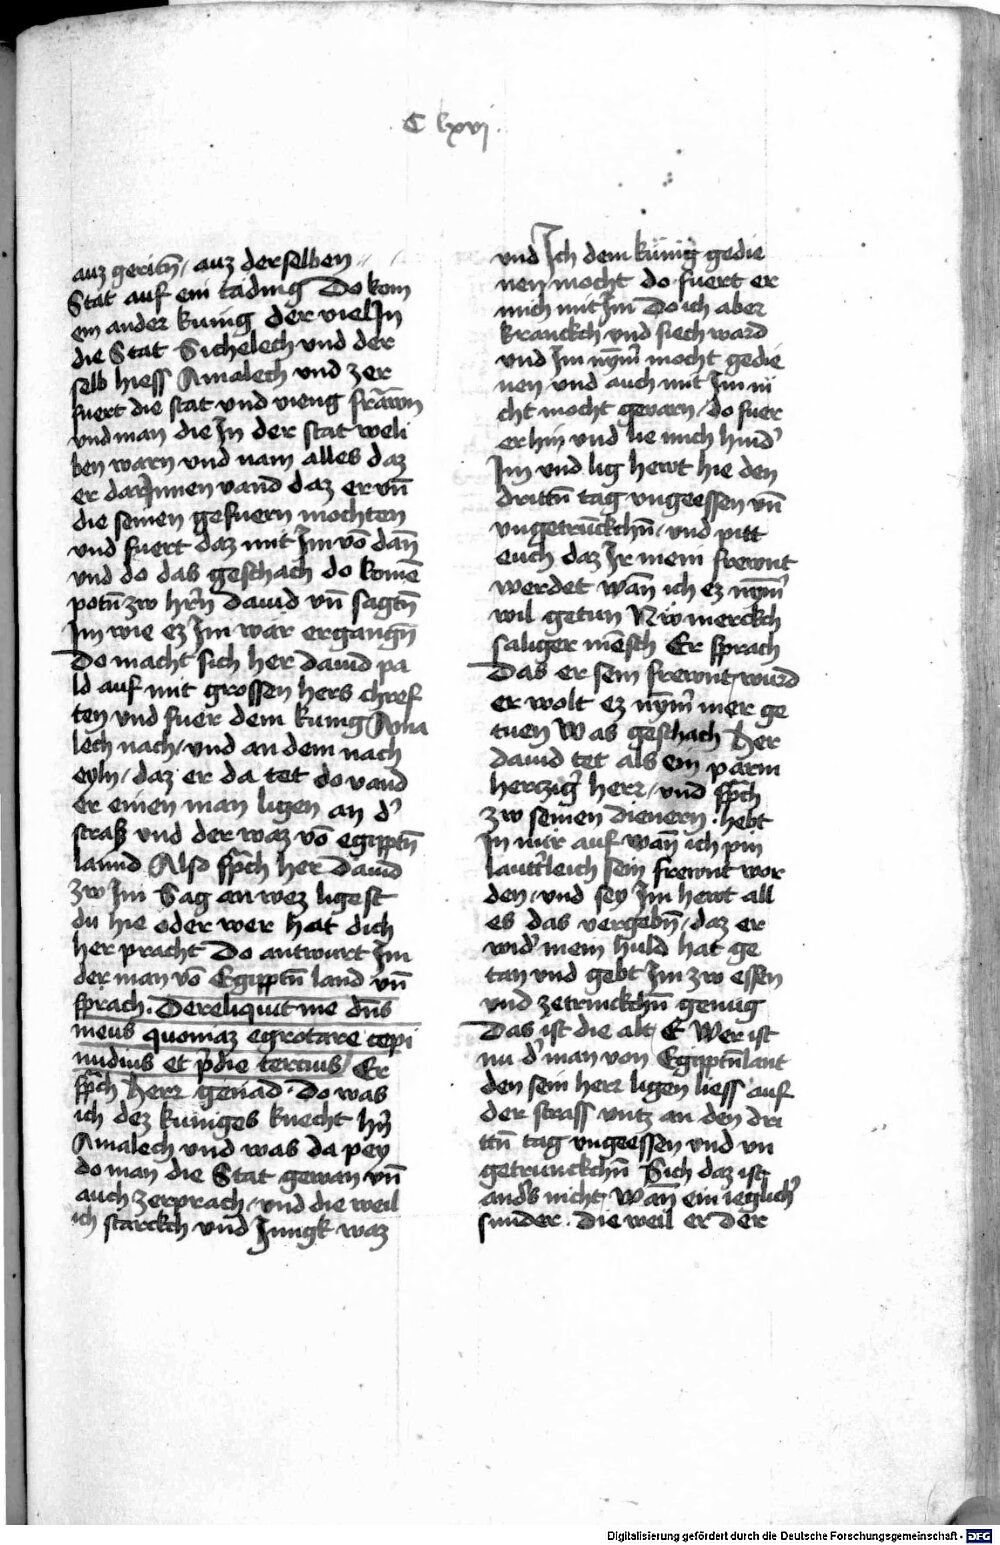 C lxvj.
auz gericħn / auz derselben
Stat auf ein tading Do kom
ein ander kunig der viel Jn
die Stat Sichelech vnd der
selb hiess Amalech vnd zer
fuert die stat vnd vieng frawn
vnd man die Jn der stat weli
ben warn vnd nam alles daz
er darJnnen vand daz er vn̄
die seinen gefuern mochten
vnd fuert daz mit Jm vō dan̄
vnd do das geschach do komē
potn̄ zw hr̄n dauid vn̄ sagtn̄
Jm wie ez Jm war ergangn̄
Do macht sich her dauid pa
ld auf mit grossen hers chref
ten vnd fuer dem kunig Ama
lech nach / vnd an dem nach
eyln / daz er da tet do vand
er einen man ligen an d'
strasz vnd der waz vō egipptn̄
lannd Also sp̄ch her dauid
zw Jm Sag an wez ligest
du hie oder wer hat dich
her pracht Do antwurt Jm
der man vō Egipptn̄ land vn̄
sprach. Dereliquit me dn̄s
meus quoniaz egrotare cepi
nudius et p̄die tercius / Er
sp̄ch herz genad . Do was
ich dez kuniges knecht hr̄n
Amalech vnd was da pey
do man die Stat gewan vn̄
auch zerprach / vnd die weil
ich starckch vnd Jungk waz
vnd Jch dem kunig gedie
nen mocht do fuert er
mich mit Jm Do ich aber
kranckch vnd siech ward
vnd Jm nym̄ mocht gedie
nen vnd auch mit Jm ni
cht mocht gevarn / do fuer
er hin vnd lie mich hind'
Jm vnd lig hewt hie den
drittn̄ tag vngeessen vn̄
vngetrunckchn̄ / vnd pitt
euch daz Jr mein frewnt
werdet wan̄ ich ez nym̄
wil getun Nw merckch
saliger mēsch Er sprach
Das er sein frewnt wurd
er wolt ez nym̄ mer ge
tuen Was geschach her
dauid tet als ein parm
hertzig' herz / vnd sp̄ch
zw seinen dienern . hebt
Jn mir auf wan̄ ich pin
lautt'leich sein frewnt wor
den / vnd sey Jm hewt all
es das vergebn̄ / daz er
wid' mein huld hat ge
tan vnd gebt Jm zw essen
vnd zetrinckchn̄ genug
Das ist die alt E Wer ist
nu d' man von Egipptn̄lant
den sein herz ligen liess auf
der strass vntz an den dri
ttn̄ tag vngeessen vnd vn
getrunckchn̄ Sich daz ist
and's nicht / Wan̄ ein ieglich'
sunder . die weil er der
Digitalisierung gefördert durch die Deutsche Forschungsgemeinschaft - DFG